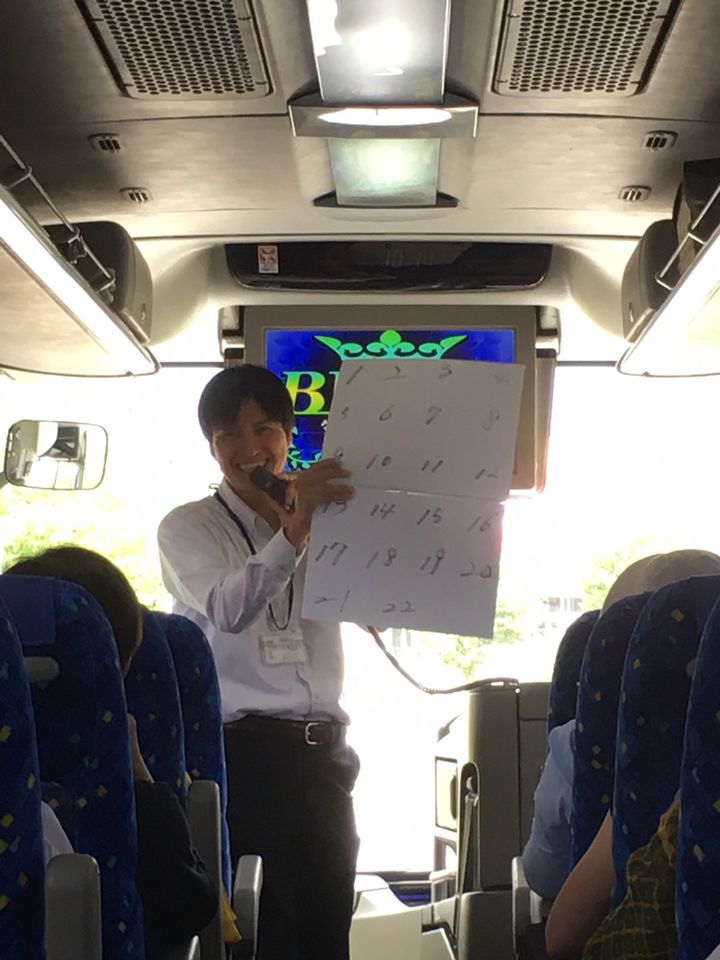 B
1 2 3 4
5 6 7 8
9 10 11 12
13 14 15 16
17 18 19 20
21 22